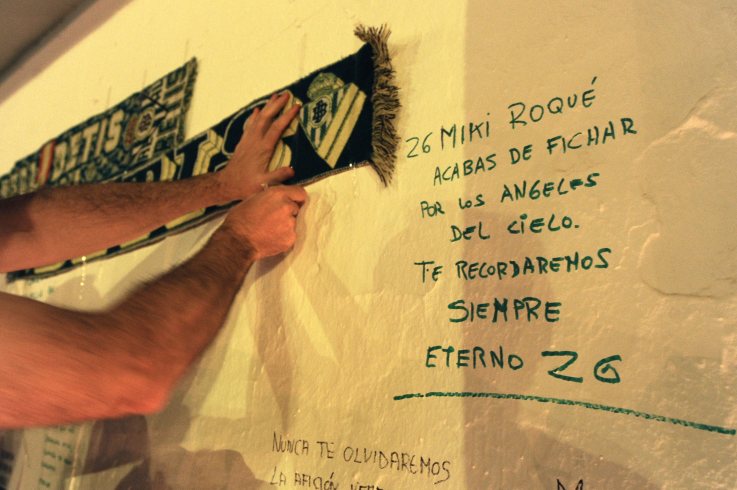 BETIS
26 MIKI ROQUÉ
ACABAS DE FICHAR
POR LOS ANGELES
DEL CIELO.
TE RECORDAREMOS
SIEMPRE
ETERNO 26
NUNCA TE OLVIDAREMOS
LA AFICIÓN